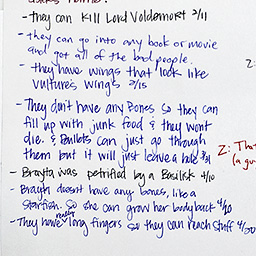 - they can kill Lord Voldemort 2/11
- they can go into any book or movie
and got all of the bad people.
- they have wings that look like
vulture's wings 2/15
2:
- They don't have any bones so they can
fill up with junk food & they wont
die. & Bullets can just go through
them but it will just leave a hole 3/31
2: Tha
(a gu
- Brayta was petrified by a Basilisk 4/10
- Brayta doesn't have any bones, like a
starfish. So she can grow her body back 4/20
- They have really long fingers so they can reach stuff 4/30